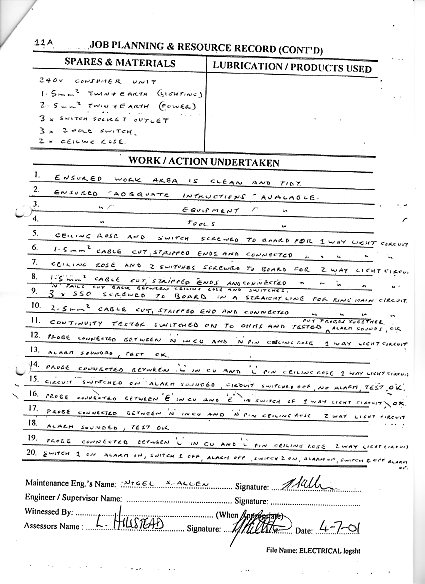 11A JOB PLANNING & RESOURCE RECORD (CONT'D)
SPARES & MATERIALS
LUBRICATION / PRODUCTS USED
240V CONSUMER UNIT
1.5mm² TWIN + EARTH (LIGHTING)
2.5mm² TWIN + EARTH (POWER)
3 x SWITCH SOCKET OUTLET
3 x 2 POLE SWITCH.
2 x CEILING ROSE.
WORK / ACTION UNDERTAKEN
1. ENSURED WORK AREA IS CLEAN AND TIDY.
2. ENSURED "ADEQUATE INTRUCTIONS" AVAILABLE.
3. " EQUIPMENT "
4. " TOOLS "
5. CEILING ROSE AND SWITCH SCREWED TO BOARD FOR 1 WAY LIGHT CIRCUIT
6. 1.5mm² CABLE CUT, STRIPPED ENDS AND CONNECTED " " " "
7. CEILING ROSE AND 2 SWITCHES SCREWED TO BOARD FOR 2 WAY LIGHT CIRCUIT
8. 1.5mm² CABLE CUT, STRIPPED ENDS AND CONNECTED " " " "
CUT BACK BETWEEN CEILING ROSE AND SWITCHES.
9. 3 x SSO SCREWED TO BOARD IN A STRAIGHT LINE FOR RING MAIN CIRCUIT
10. 2.5mm² CABLE CUT, STRIPPED END AND CONNECTED " " "
PUT PROBES TOGETHER
11. CONTINUITY TESTER SWITCHED ON TO OHMS AND TESTED, ALARM SOUNDS, OK
12. PROBE CONNECTED BETWEEN 'N' IN CU AND 'N' PIN CEILING ROSE 1 WAY LIGHT CIRCUIT
13. ALARM SOUNDED, TEST OK.
14. PROBE CONNECTED BETWEEN 'L' IN CU AND 'L' PIN CEILING ROSE 1 WAY LIGHT CIRCUIT
15. CIRCUIT SWITCHED ON ALARM SOUNDED, CIRCUIT SWITCHED OFF, NO ALARM, TEST OK.
16. PROBE CONNECTED BETWEEN 'E' IN CU AND 'E' IN SWITCH OF 1 WAY LIGHT CIRCUIT, OK
17. PROBE CONNECTED BETWEEN 'N' IN CU AND 'N' PIN CEILING ROSE 2 WAY LIGHT CIRCUIT
18. ALARM SOUNDED, TEST OK.
19. PROBE CONNECTED BETWEEN 'L' IN CU AND 'L' PIN CEILING ROSE 2 WAY LIGHT CIRCUIT
20. SWITCH 1 ON ALARM ON, SWITCH 1 OFF, ALARM OFF, SWITCH 2 ON, ALARM ON, SWITCH 2 OFF ALARM
OFF.
Maintenance Eng.'s Name: NIGEL S. ALLEN Signature: N. Allen
Engineer / Supervisor Name: Signature:
Witnessed By: (When Appropriate)
Assessors Name : L. HALSTEAD Signature: Date: 4-7-01
File Name: ELECTRICAL logsht